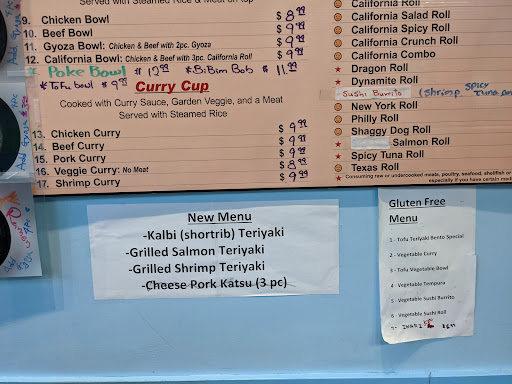 Served with Steamed Rice & Meat on top
9. Chicken Bowl $ 8.99
10. Beef Bowl $ 9.99
11. Gyoza Bowl: Chicken & Beef with 2pc. Gyoza $ 9.99
12. California Bowl: Chicken & Beef with 3pc. California Roll $ 9.99
* Poke Bowl $ 12.99 * BiBim Bob $ 11.99
* Tofu bowl $ 9.99
Curry Cup
Cooked with Curry Sauce, Garden Veggie, and a Meat
Served with Steamed Rice
13. Chicken Curry $ 9.99
14. Beef Curry $ 9.99
15. Pork Curry $ 9.99
16. Veggie Curry: No Meat $ 8.99
17. Shrimp Curry $ 9.99
California Roll
California Salad Roll
California Spicy Roll
California Crunch Roll
California Combo
Dragon Roll
Dynamite Roll
Sushi Burrito (Shrimp, Spicy Tuna
New York Roll
Philly Roll
Shaggy Dog Roll
Salmon Roll
Spicy Tuna Roll
Texas Roll
Consuming raw or undercooked meats, poultry, seafood, shellfish or
especially if you have certain med
New Menu
-Kalbi (shortrib) Teriyaki
-Grilled Salmon Teriyaki
-Grilled Shrimp Teriyaki
-Cheese Pork Katsu (3 pc)
Gluten Free
Menu
1 - Tofu Teriyaki Bento Special
2 - Vegetable Curry
3 - Tofu Vegetable Bowl
4 - Vegetable Tempura
5 - Vegetable Sushi Burrito
6 - Vegetable Sushi Roll
7- INARI